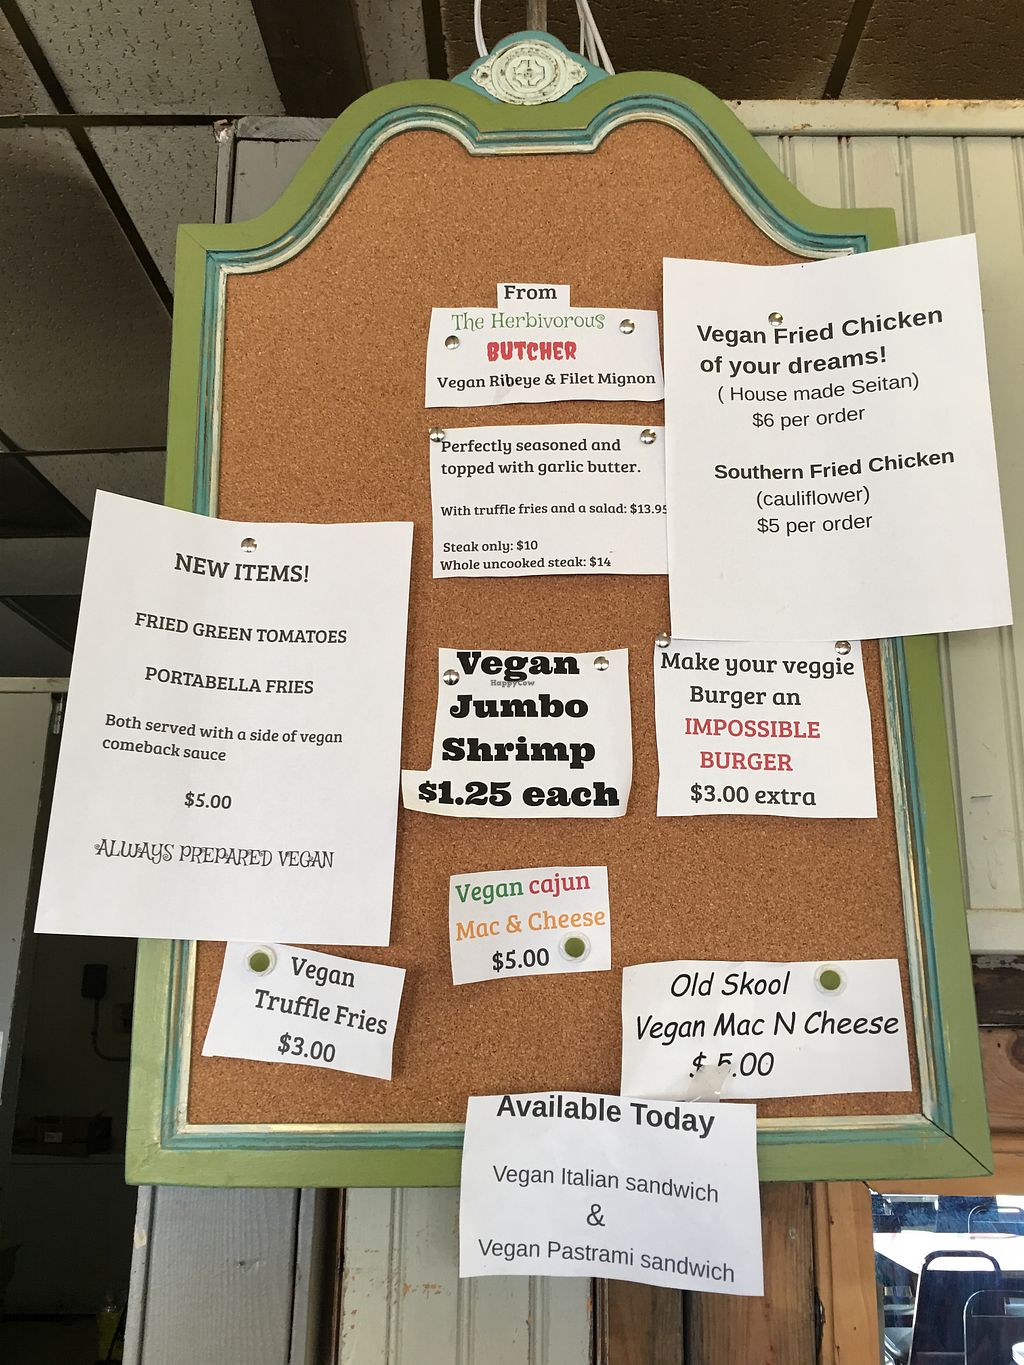 From
The Herbivorous
BUTCHER
Vegan Ribeye & Filet Mignon
Perfectly seasoned and
topped with garlic butter.
With truffle fries and a salad: $13.95
Steak only: $10
Whole uncooked steak: $14
Vegan Fried Chicken
of your dreams!
( House made Seitan)
$6 per order
Southern Fried Chicken
(cauliflower)
$5 per order
NEW ITEMS!
FRIED GREEN TOMATOES
PORTABELLA FRIES
Both served with a side of vegan
comeback sauce
$5.00
ALWAYS PREPARED VEGAN
Vegan
HappyCow
Jumbo
Shrimp
$1.25 each
Make your veggie
Burger an
IMPOSSIBLE
BURGER
$3.00 extra
Vegan cajun
Mac & Cheese
$5.00
Vegan
Truffle Fries
$3.00
Old Skool
Vegan Mac N Cheese
$ 5.00
Available Today
Vegan Italian sandwich
&
Vegan Pastrami sandwich